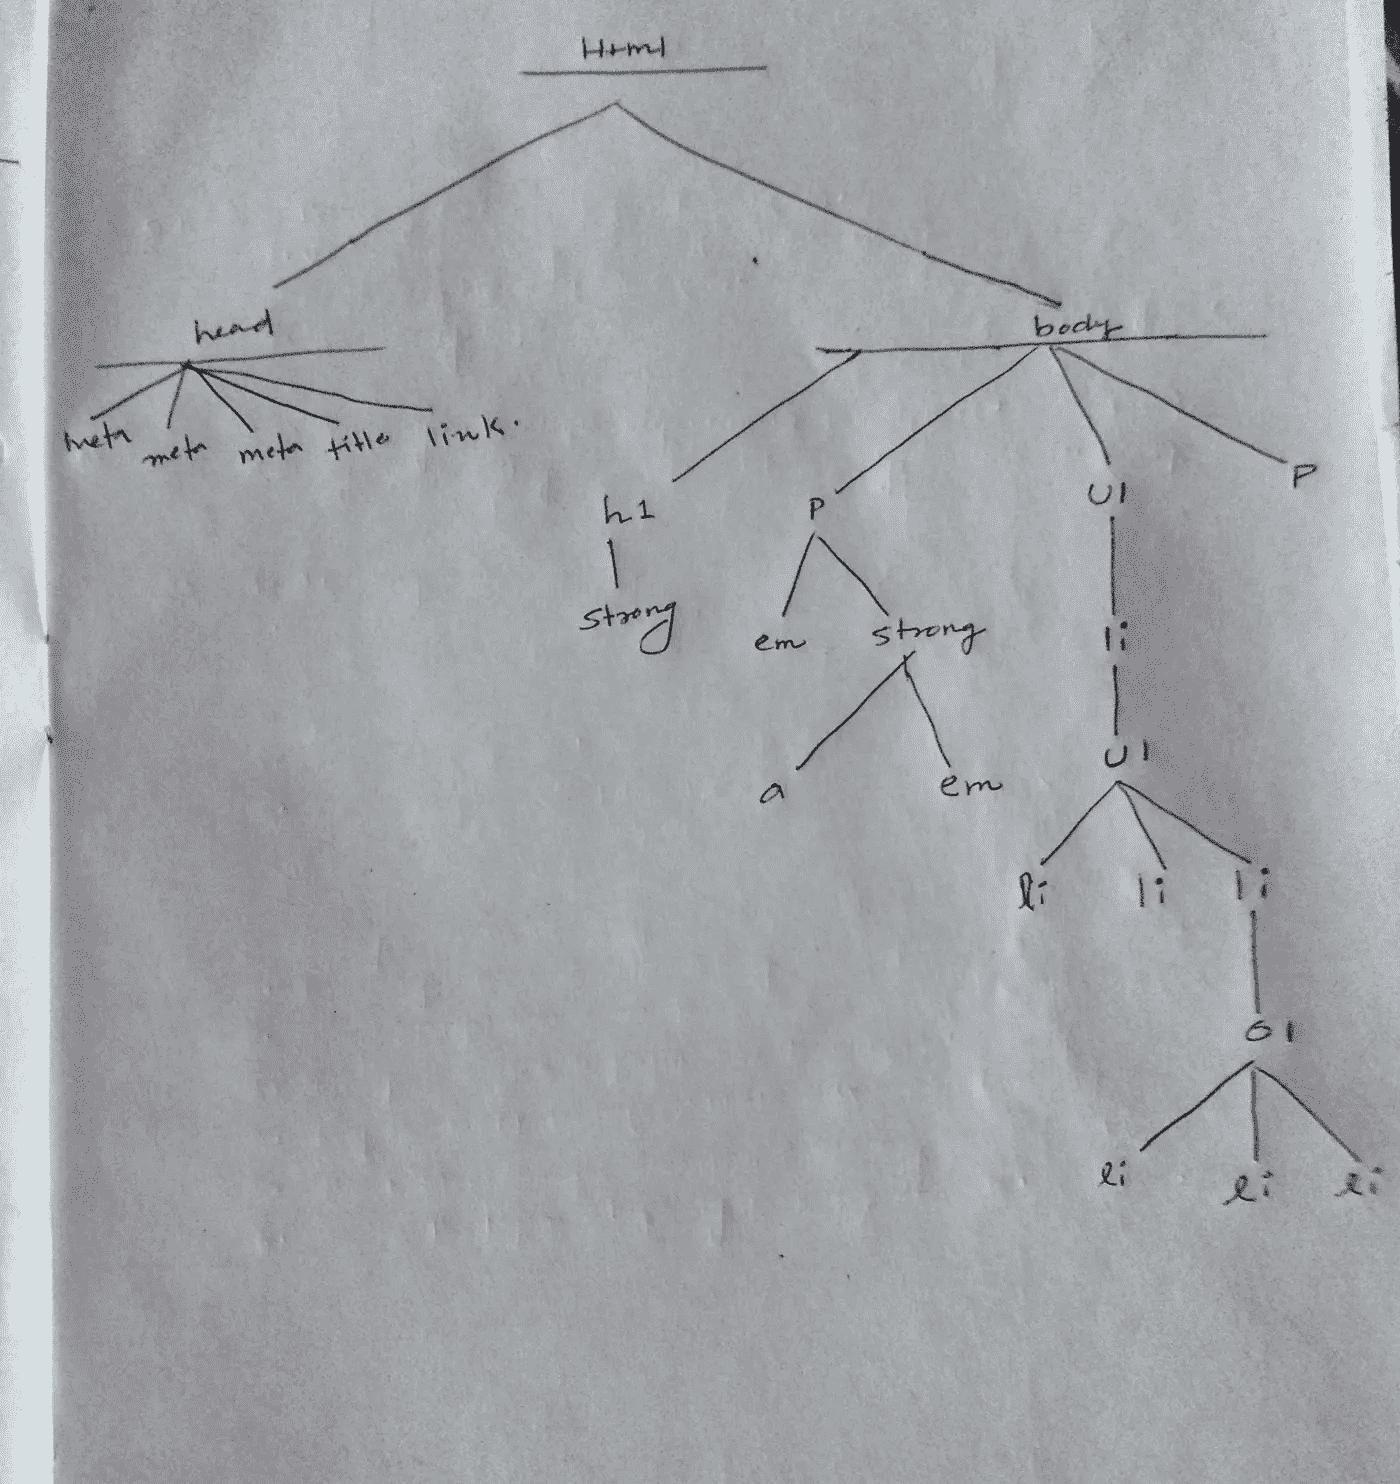 Html
head
body
meta meta meta title link.
h1 P Ul P
strong em strong li
a em Ul
li li li
ol
li li li